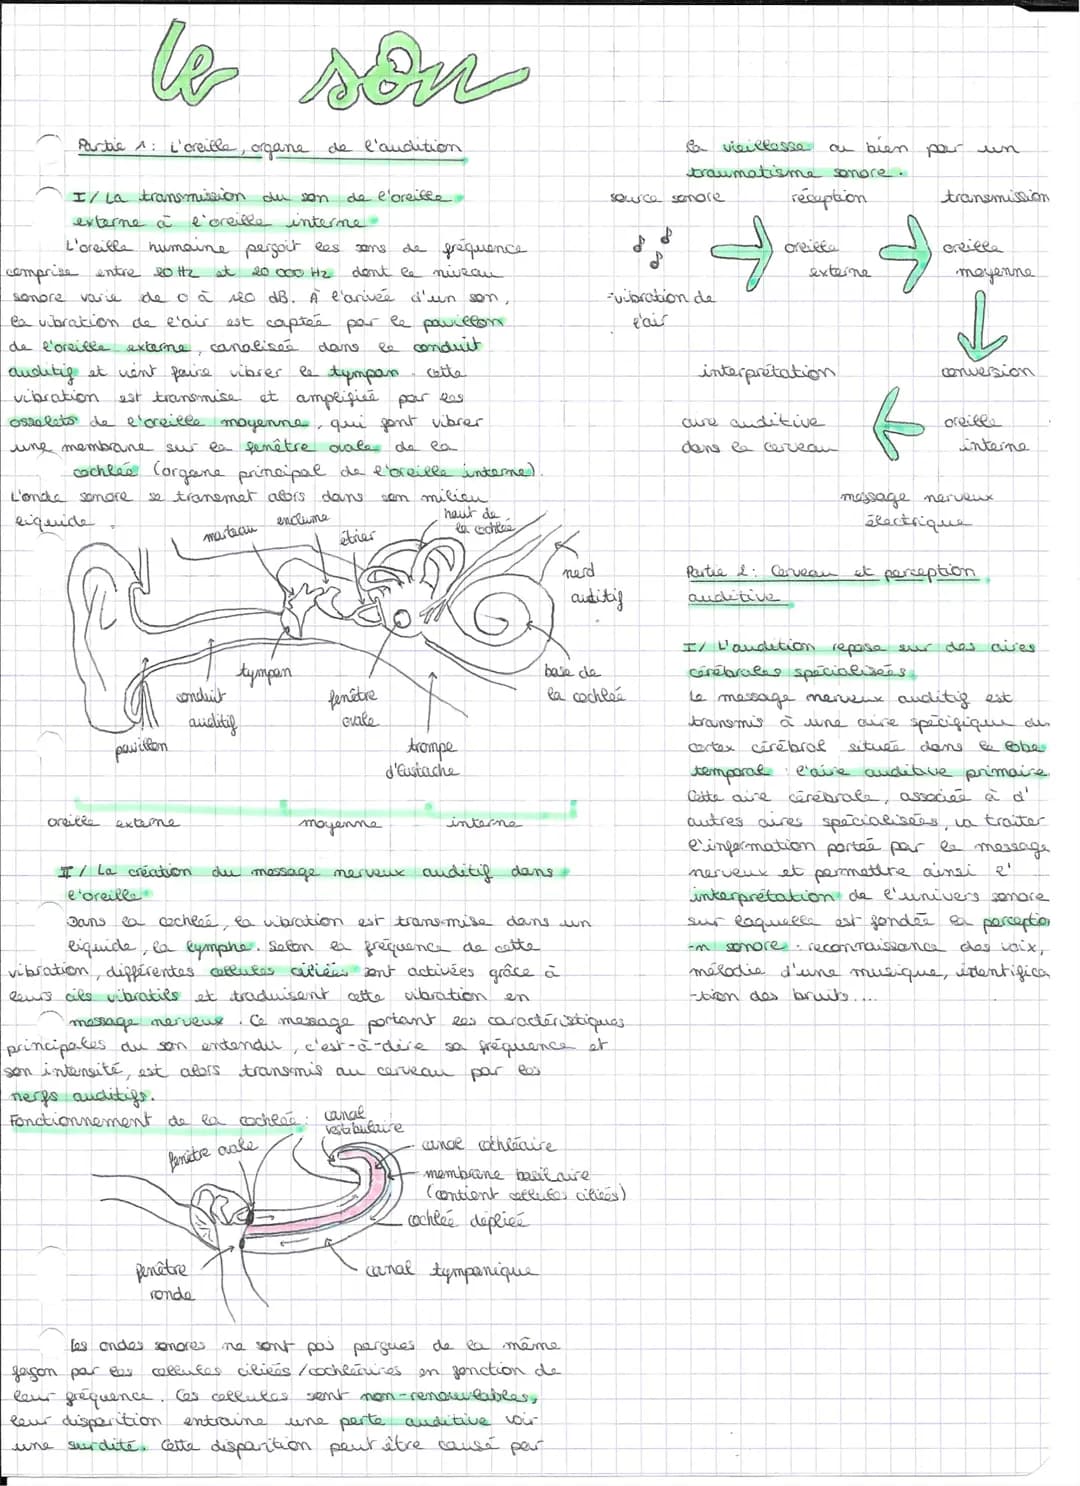 le son
Partie 1: L'oreille, organe de l'audition
I/ La transmission du son de l'oreille
externe à l'oreille interne
L'oreille humaine perçoit les sons de fréquence
comprise entre 20 Hz et 20 000 Hz dont le niveau
sonore varie de 0 à 120 dB. À l'arivée d'un son,
la vibration de l'air est captée par le pavillon
de l'oreille externe, canalisée dans le conduit
auditif et vient faire vibrer le tympan. Cette
vibration est transmise et amplifiée par les
osselets de l'oreille moyenne, qui font vibrer
une membrane sur la fenêtre ovale de la
cochlée (organe principal de l'oreille interne).
L'onde sonore se transmet alors dans son milieu
liquide.
marteau
enclume
étrier
haut de
la cochlée
nerd
auditif
base de
la cochlée
tympan
conduit
auditif
fenêtre
ovale
pavillon
trompe
d'Eustache
oreille externe
moyenne
interne
II/ La création du message nerveux auditif dans
l'oreille
Dans la cochlée, la vibration est transmise dans un
liquide, la lymphe. Selon la fréquence de cette
vibration, différentes cellules ciliées sont activées grâce à
leurs cils vibratils et traduisent cette vibration en
message nerveux. Ce message portant les caractéristiques
principales du son entendu, c'est-à-dire sa fréquence et
son intensité, est alors transmis au cerveau par les
nerfs auditifs.
Fonctionnement de la cochlée:
canal
vestibulaire
fenêtre ovale
canal cochléaire
membrane basilaire
(contient cellules ciliées)
cochlée dépliée
canal tympanique
fenêtre
ronde
Les ondes sonores ne sont pas perçues de la même
façon par les cellules ciliées/cochléaires en fonction de
leur fréquence. Ces cellules sont non-renouvlables,
leur disparition entraine une perte auditive voir
une surdité. Cette disparition peut être causé par
la vieillesse ou bien par un
traumatisme sonore.
source sonore
réception
transmission
oreille
externe
oreille
moyenne
-vibration de
l'air
interprétation
conversion
aire auditive
dans le cerveau
oreille
interne
message nerveux
électrique
Partie 2: Cerveau et perception
auditive
I/ L'audition repose sur des aires
cérébrales spécialisées
Le message nerveux auditif est
transmis à une aire spécifique du
cortex cérébral située dans le lobe
temporal : l'aire auditive primaire.
Cette aire cérébrale, associée à d'
autres aires spécialisées, va traiter
l'information portée par le message
nerveux et permettre ainsi l'
interprétation de l'univers sonore
sur laquelle est fondée la perceptio
-n sonore : reconnaissance des voix,
mélodie d'une musique, identifica
-tion des bruits....